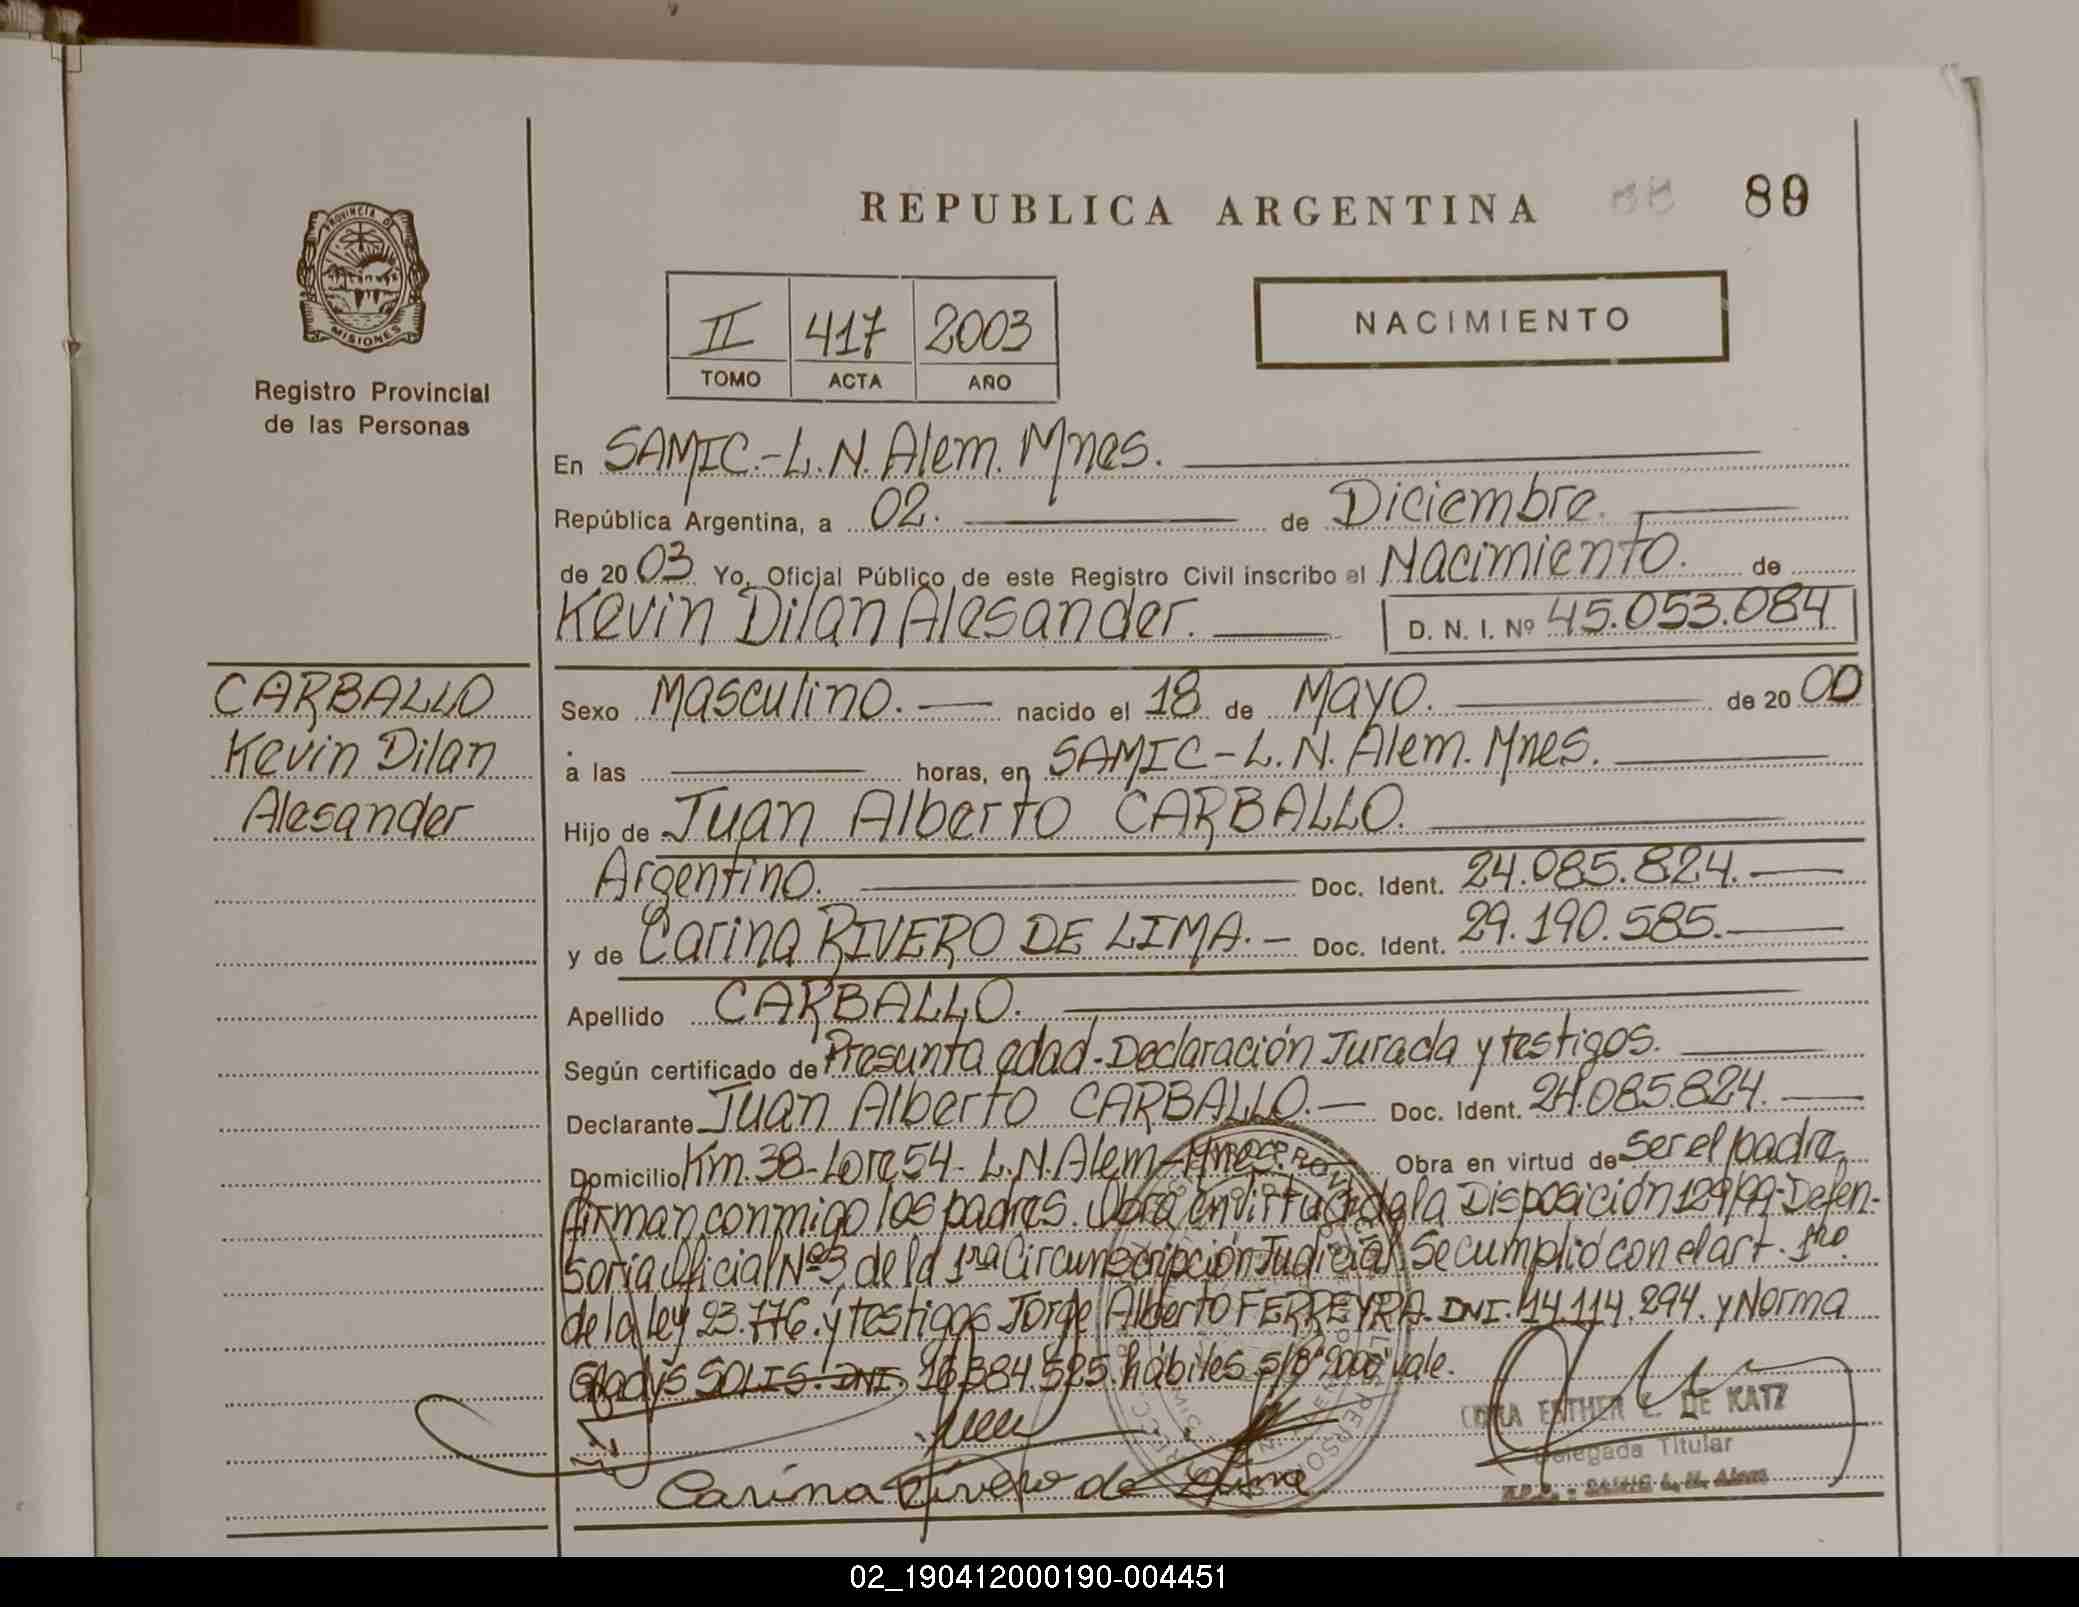 REPUBLICA ARGENTINA 89
PROVINCIA DE
MISIONES
Registro Provincial
de las Personas
II 417 2003
TOMO ACTA AÑO
NACIMIENTO
En SAMIC.-L.N. Alem. Mnes.
República Argentina, a 02. de Diciembre.
de 2003 Yo, Oficial Público de este Registro Civil inscribo el Nacimiento. de
Kevin Dilan Alesander. D. N. I. Nº 45.053.084
CARBALLO
Kevin Dilan
Alesander
Sexo Masculino. nacido el 18 de Mayo. de 2000
a las horas, en SAMIC-L.N. Alem. Mnes.
Hijo de Juan Alberto CARBALLO.
Argentino. Doc. Ident. 24.085.824.
y de Carina RIVERO DE LIMA.- Doc. Ident. 29.190.585.
Apellido CARBALLO.
Según certificado de Presunta edad-Declaración Jurada y testigos.
Declarante Juan Alberto CARBALLO.- Doc. Ident. 24.085.824.
Domicilio Km.38-Lote 54- L.N.Alem-Mnes. Obra en virtud de Ser el padre,
firman conmigo los padres. Obra en virtud de la Disposición 129/99-Defen-
soría Oficial Nº3, de la 1ra Circunscripción Judicial. Se cumplió con el art. 1ro
de la ley 23.776. y testigos Jorge Alberto FERREYRA. DNI. 14.114.294. y Norma
Gladys SOLIS. DNI. 16.384.525. hábiles. s/Bº "2000" vale.
Carina Rivero de Lima
ESTHER L. DE KATZ
Delegada Titular
R.P.P. - SAMIC L. N. Alem
02_190412000190-004451